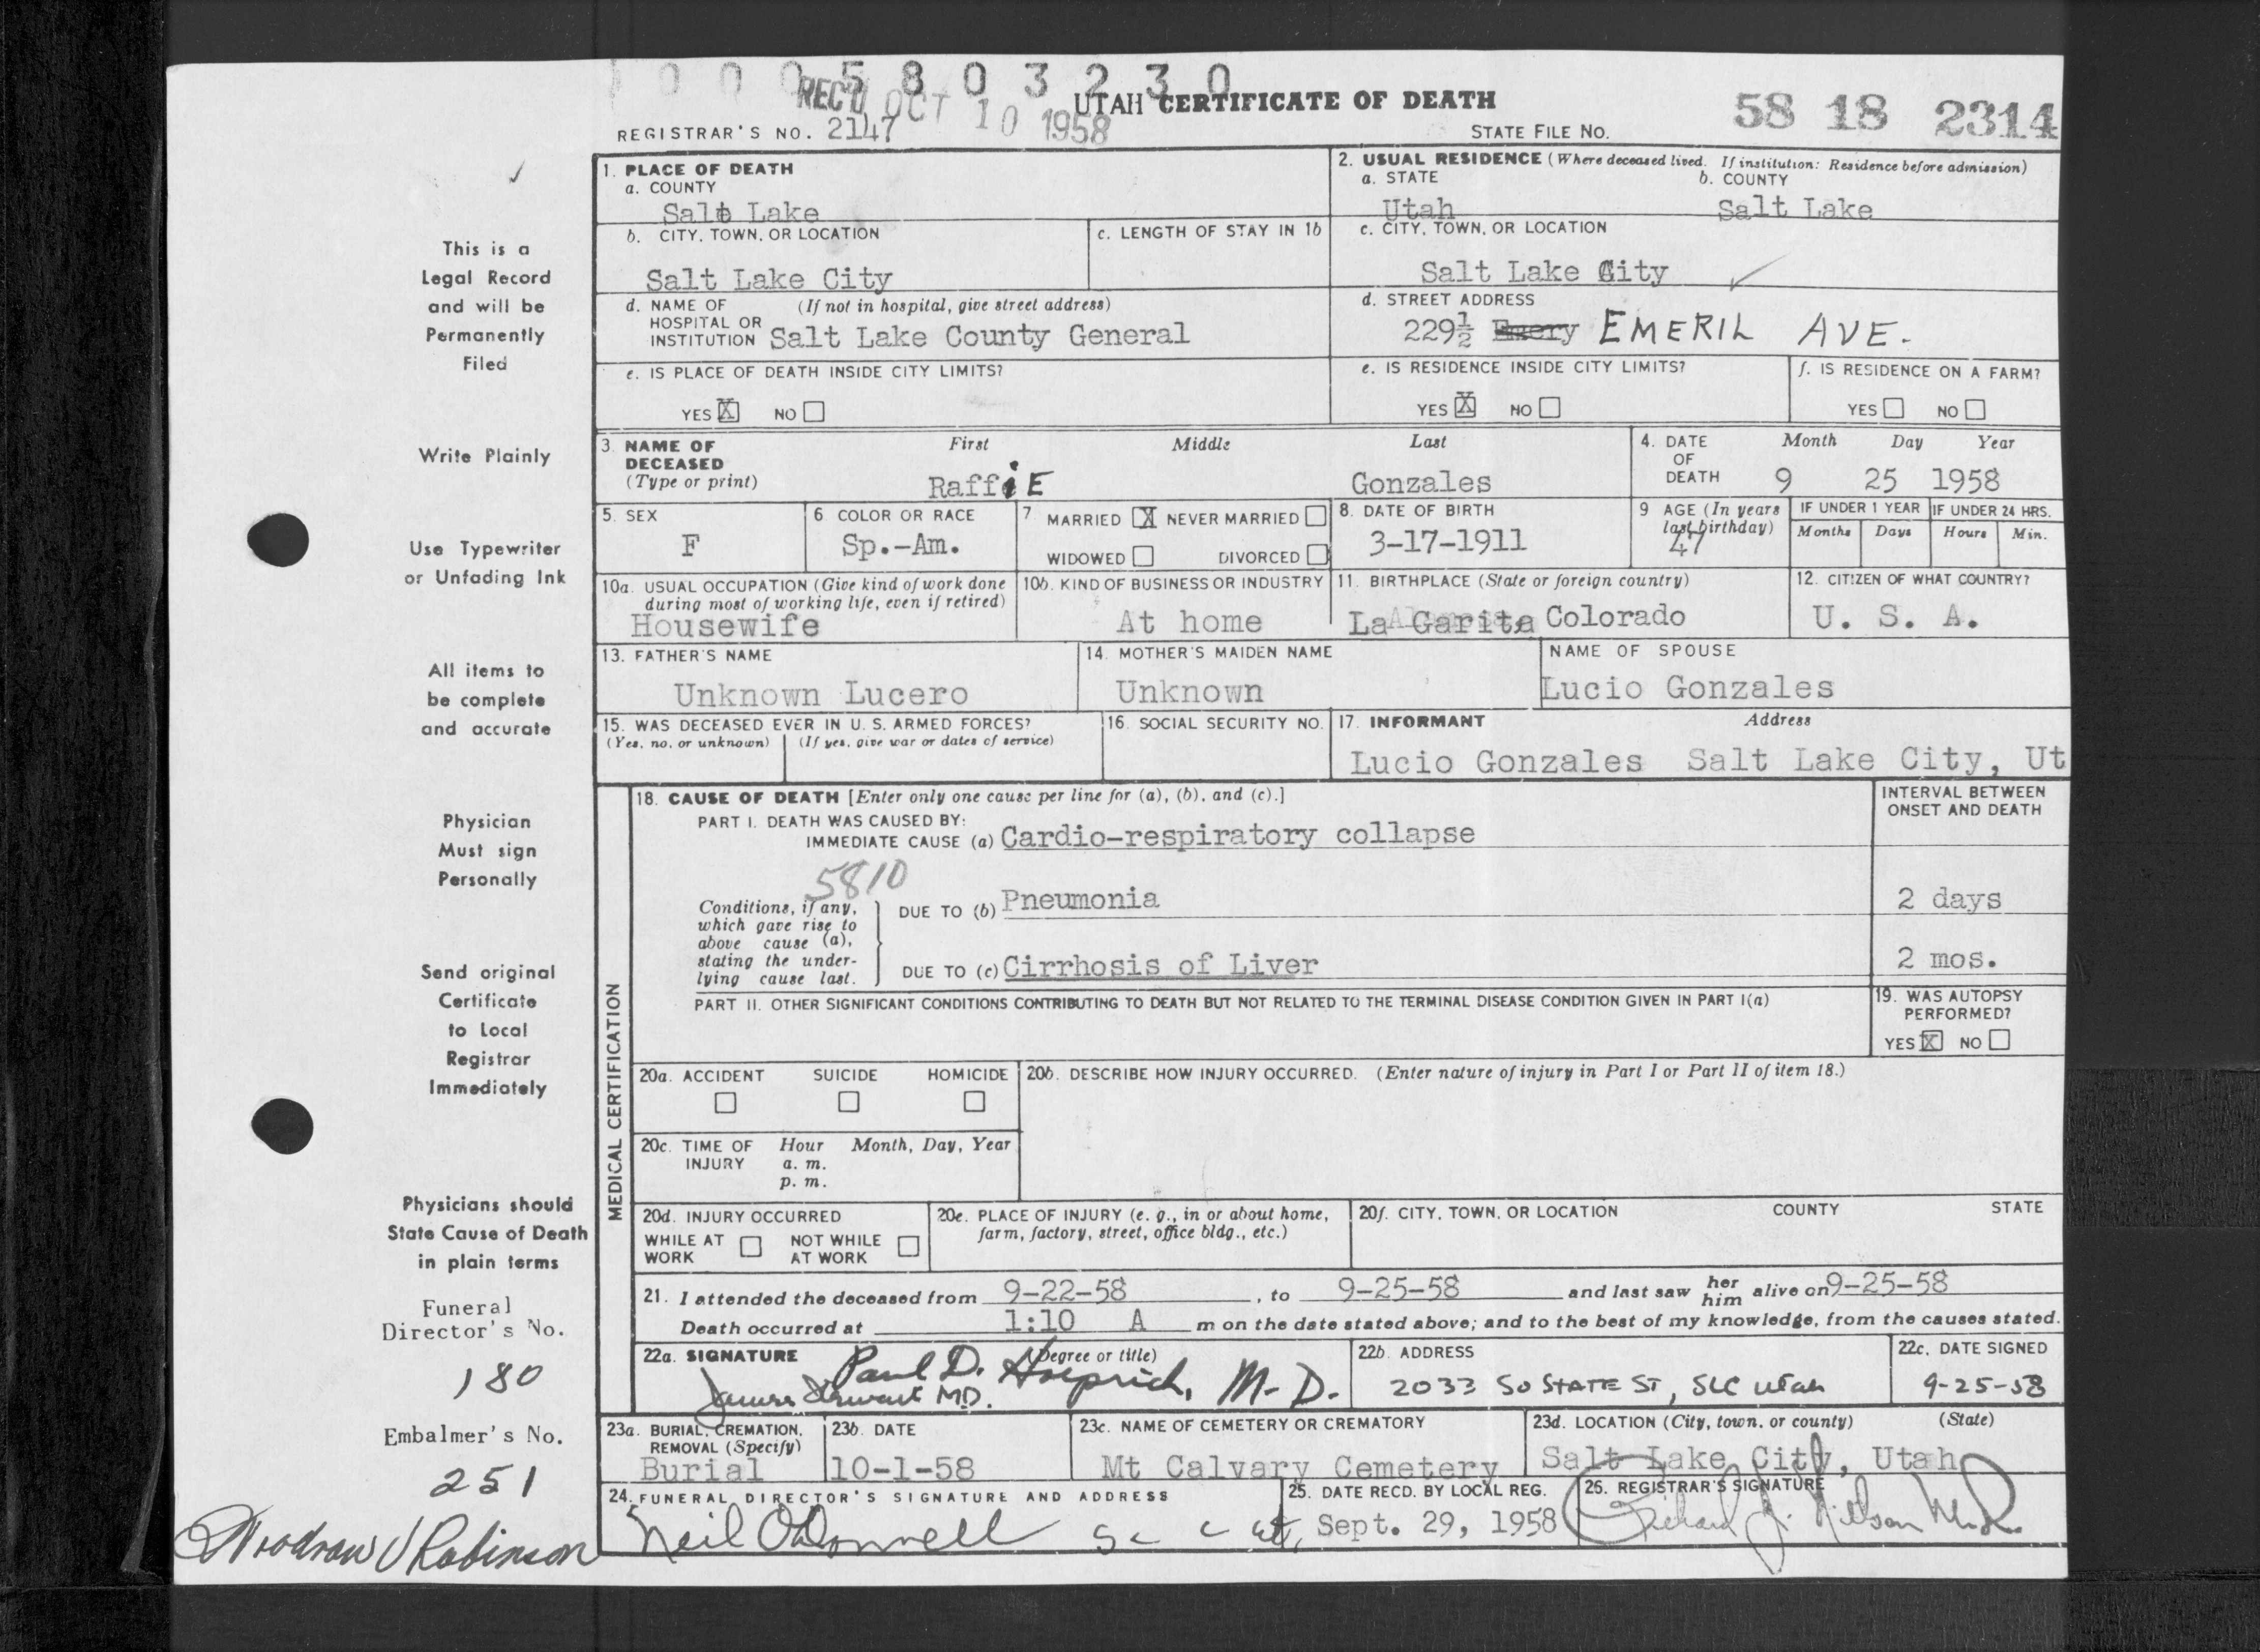 1 0 0 0 5 8 0 3 2 3 0
REC'D OCT 10 1958
UTAH CERTIFICATE OF DEATH
REGISTRAR'S NO. 2147
STATE FILE NO. 58 18 2314
1. PLACE OF DEATH
a. COUNTY
Salt Lake
2. USUAL RESIDENCE (Where deceased lived. If institution: Residence before admission)
a. STATE b. COUNTY
Utah Salt Lake
b. CITY, TOWN, OR LOCATION
Salt Lake City
c. LENGTH OF STAY IN 1b
c. CITY, TOWN, OR LOCATION
Salt Lake City
d. NAME OF (If not in hospital, give street address)
HOSPITAL OR
INSTITUTION Salt Lake County General
d. STREET ADDRESS
229½ Emery EMERIL AVE.
e. IS PLACE OF DEATH INSIDE CITY LIMITS?
YES X NO
e. IS RESIDENCE INSIDE CITY LIMITS?
YES X NO
f. IS RESIDENCE ON A FARM?
YES NO
3. NAME OF First Middle Last
DECEASED
(Type or print) RaffiE Gonzales
4. DATE Month Day Year
OF
DEATH 9 25 1958
5. SEX
F
6 COLOR OR RACE
Sp.-Am.
7 MARRIED X NEVER MARRIED
WIDOWED DIVORCED
8. DATE OF BIRTH
3-17-1911
9 AGE (In years
last birthday)
47
IF UNDER 1 YEAR
Months Days
IF UNDER 24 HRS.
Hours Min.
10a. USUAL OCCUPATION (Give kind of work done
during most of working life, even if retired)
Housewife
10b. KIND OF BUSINESS OR INDUSTRY
At home
11. BIRTHPLACE (State or foreign country)
La Garita, Colorado
12. CITIZEN OF WHAT COUNTRY?
U. S. A.
13. FATHER'S NAME
Unknown Lucero
14. MOTHER'S MAIDEN NAME
Unknown
NAME OF SPOUSE
Lucio Gonzales
15. WAS DECEASED EVER IN U. S. ARMED FORCES?
(Yes, no, or unknown) (If yes, give war or dates of service)
16. SOCIAL SECURITY NO.
17. INFORMANT Address
Lucio Gonzales Salt Lake City, Ut
MEDICAL CERTIFICATION
18. CAUSE OF DEATH [Enter only one cause per line for (a), (b), and (c).]
INTERVAL BETWEEN
ONSET AND DEATH
PART I. DEATH WAS CAUSED BY:
IMMEDIATE CAUSE (a) Cardio-respiratory collapse
5810
Conditions, if any,
which gave rise to
above cause (a),
stating the under-
lying cause last.
DUE TO (b) Pneumonia 2 days
DUE TO (c) Cirrhosis of Liver 2 mos.
PART II. OTHER SIGNIFICANT CONDITIONS CONTRIBUTING TO DEATH BUT NOT RELATED TO THE TERMINAL DISEASE CONDITION GIVEN IN PART I(a)
19. WAS AUTOPSY
PERFORMED?
YES X NO
20a. ACCIDENT SUICIDE HOMICIDE
20b. DESCRIBE HOW INJURY OCCURRED. (Enter nature of injury in Part I or Part II of item 18.)
20c. TIME OF Hour Month, Day, Year
INJURY a. m.
p. m.
20d. INJURY OCCURRED
WHILE AT NOT WHILE
WORK AT WORK
20e. PLACE OF INJURY (e. g., in or about home,
farm, factory, street, office bldg., etc.)
20f. CITY, TOWN, OR LOCATION COUNTY STATE
21. I attended the deceased from 9-22-58, to 9-25-58 and last saw her him alive on 9-25-58
Death occurred at 1:10 A m on the date stated above; and to the best of my knowledge, from the causes stated.
22a. SIGNATURE (Degree or title)
Paul D. Hoeprich, M.D.
James Stewart MD.
22b. ADDRESS
2033 SO STATE ST, SLC Utah
22c. DATE SIGNED
9-25-58
23a. BURIAL, CREMATION,
REMOVAL (Specify)
Burial
23b. DATE
10-1-58
23c. NAME OF CEMETERY OR CREMATORY
Mt Calvary Cemetery
23d. LOCATION (City, town, or county) (State)
Salt Lake City, Utah
24. FUNERAL DIRECTOR'S SIGNATURE AND ADDRESS
Neil O'Donnell
25. DATE RECD. BY LOCAL REG.
Sept. 29, 1958
26. REGISTRAR'S SIGNATURE
Richard J. Nilson M.D.
This is a
Legal Record
and will be
Permanently
Filed
Write Plainly
Use Typewriter
or Unfading Ink
All items to
be complete
and accurate
Physician
Must sign
Personally
Send original
Certificate
to Local
Registrar
Immediately
Physicians should
State Cause of Death
in plain terms
Funeral
Director's No.
180
Embalmer's No.
251
Woodrow J Robinson